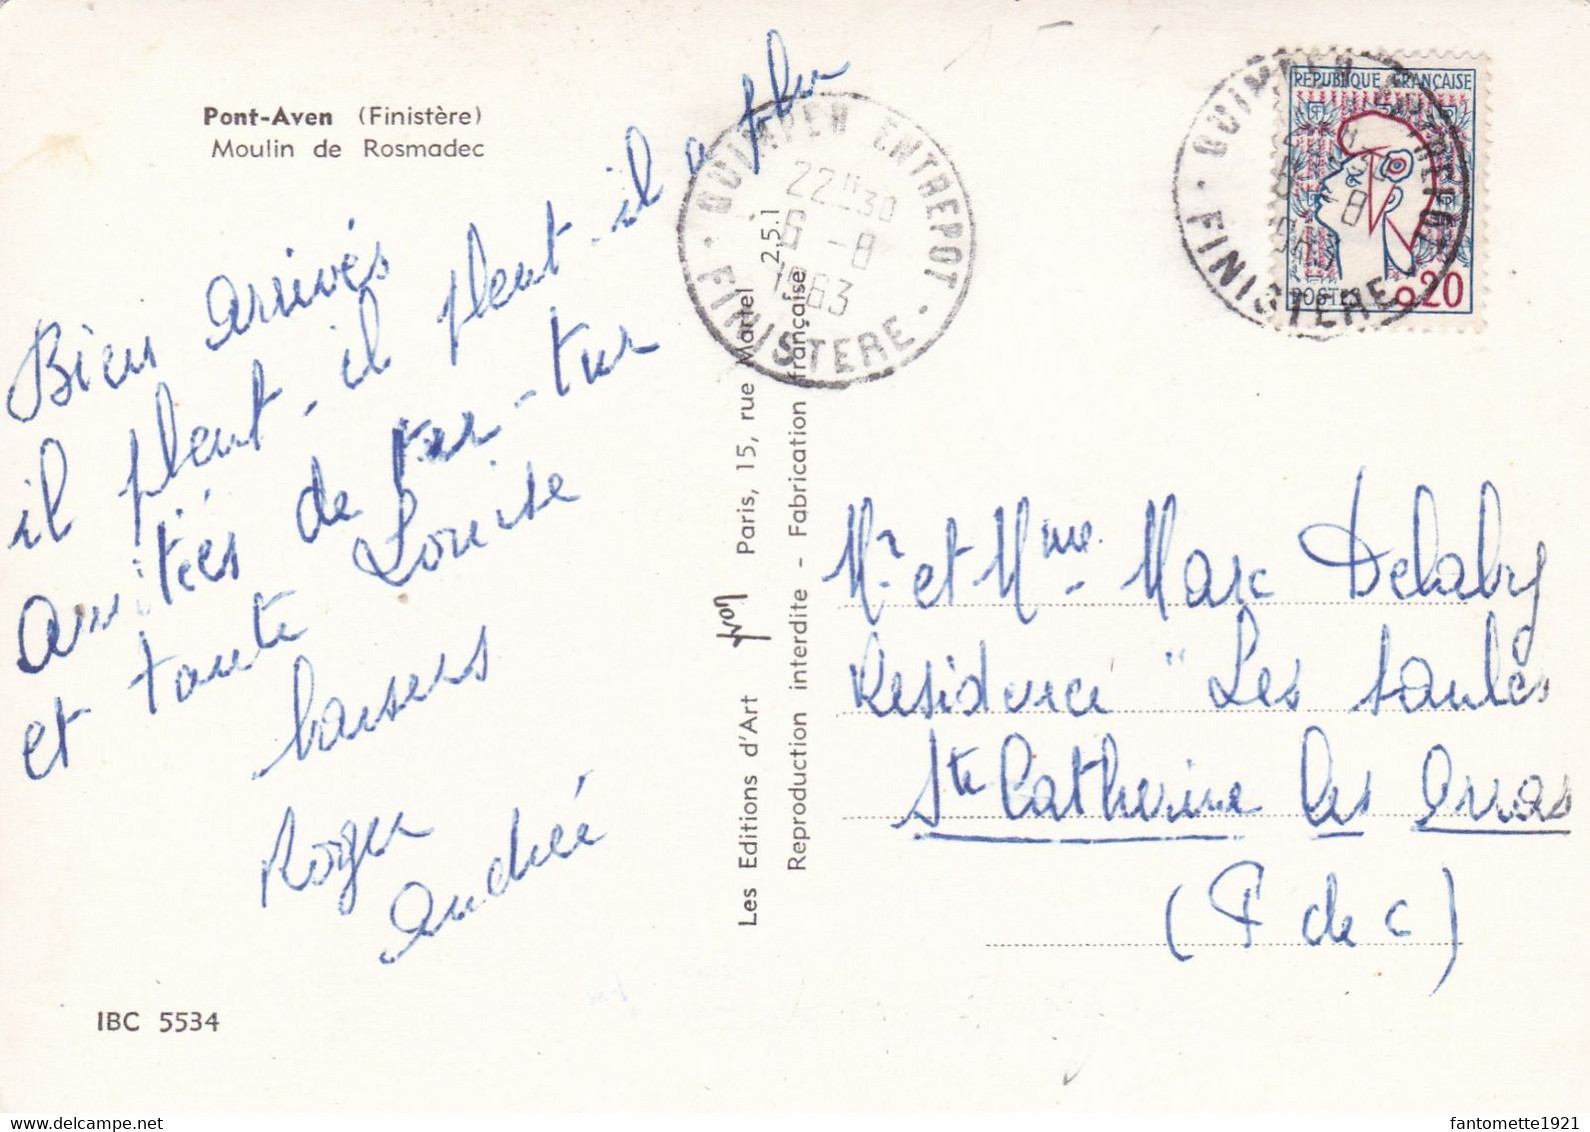 Pont-Aven (Finistère)
Moulin de Rosmadec
Bien arrivés
il pleut - il pleut - il a plu
Amitiés de tur-tur
et tante Louise
baisers
Roger
Andrée
IBC 5534
Les Editions d'Art yvon Paris, 15, rue Martel 2.5.1
Reproduction interdite - Fabrication française
QUIMPER ENTREPOT
22H30
6 - 8
1963
FINISTERE
QUIMPER ENTREPOT
6 - 8
1963
FINISTERE
REPUBLIQUE FRANÇAISE
POSTES 0,20
Mr et Mme Marc Delaby
Residence "Les Saules
Ste Catherine les Arras
(P de C)
fantomette1921